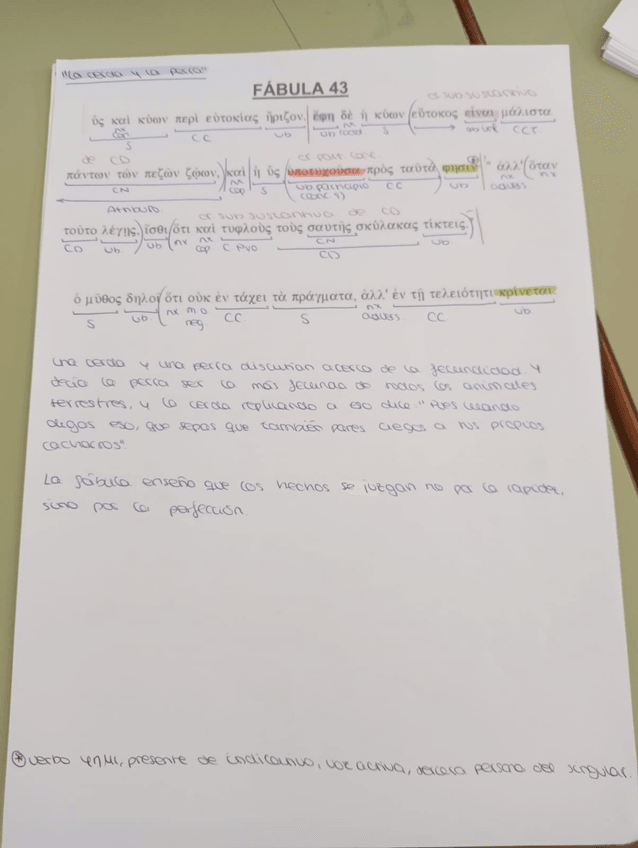 "La cerda y la perra"
FÁBULA 43
or sub sustantiva
ὗς καὶ κύων περὶ εὐτοκίας ἤριζον. ἔφη δὲ ἡ κύων εὔτοκος εἶναι μάλιστα
S CC Vb Vb S CCT
de CD
πάντων τῶν πεζῶν ζῴων, καὶ ἡ ὗς ὑποτυχοῦσα πρὸς ταῦτά φησιν· "ἀλλ' ὅταν
CN nx cop S vb participio (conc S) CC Vb nx advers nx
Atributo or sub sustantiva de CD
τοῦτο λέγῃς, ἴσθι ὅτι καὶ τυφλοὺς τοὺς σαυτῆς σκύλακας τίκτεις."
CD Vb Vb nx nx cop C Pvo CN Vb
CD
ὁ μῦθος δηλοῖ ὅτι οὐκ ἐν τάχει τὰ πράγματα, ἀλλ' ἐν τῇ τελειότητι κρίνεται.
S Vb nx mo neg CC S nx advers CC Vb
Una cerda y una perra discutían acerca de la fecundidad. Y
decía la perra ser la más fecunda de todos los animales
terrestres, y la cerda replicando a eso dice "Pues cuando
digas eso, que sepas que también pares ciegos a tus propios
cachorros".
La fábula enseña que los hechos se juzgan no por la rapidez,
sino por la perfección.
* verbo φημι, presente de indicativo, voz activa, tercera persona del singular.